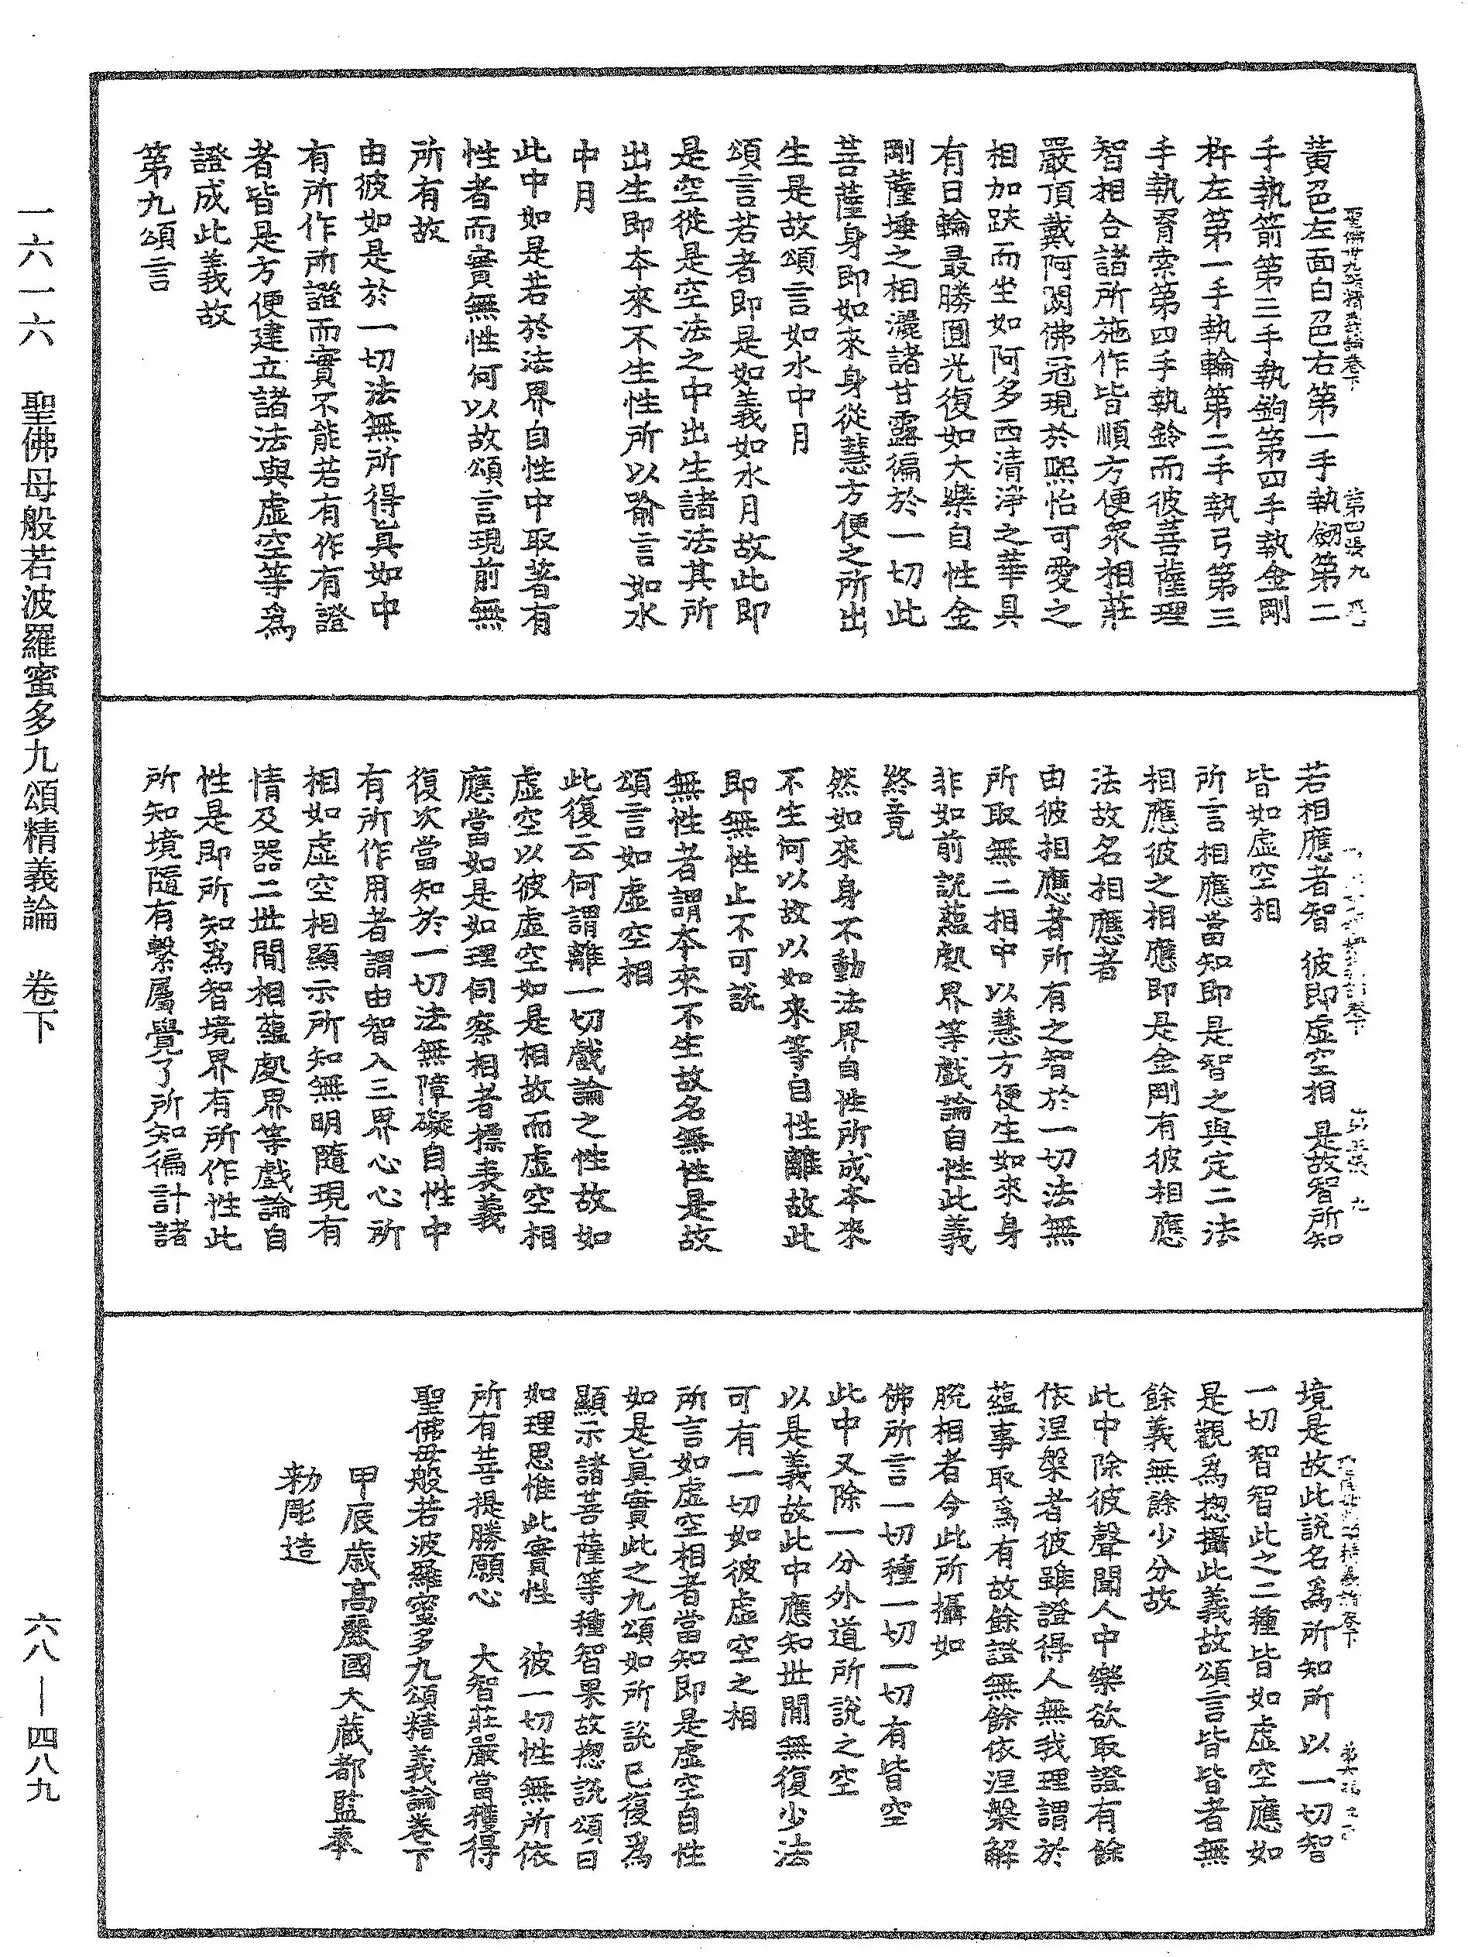 聖佛母九頌精義論卷下　第四張　九
黃色左面白色右第一手執劒第二
手執箭第三手執鉤第四手執金剛
杵左第一手執輪第二手執弓第三
手執罥索第四手執鈴而彼菩薩理
智相合諸所施作皆順方便衆相莊
嚴頂戴阿閦佛冠現於熙怡可愛之
相加趺而坐如阿多西清淨之華具
有日輪最勝圓光復如大樂自性金
剛薩埵之相灑諸甘露徧於一切此
菩薩身即如來身從慧方便之所出
生是故頌言如水中月
頌言若者即是如義如水月故此即
是空從是空法之中出生諸法其所
出生即本來不生性所以喻言如水
中月
此中如是若於法界自性中取著有
性者而實無性何以故頌言現前無
所有故
由彼如是於一切法無所得眞如中
有所作所證而實不能若有作有證
者皆是方便建立諸法與虛空等爲
證成此義故
第九頌言
若相應者智　彼即虛空相　是故智所知
皆如虛空相
所言相應當知即是智之與定二法
相應彼之相應即是金剛有彼相應
法故名相應者
由彼相應者所有之智於一切法無
所取無二相中以慧方便生如來身
非如前說蘊處界等戲論自性此義
終竟
然如來身不動法界自性所成本來
不生何以故以如來等自性離故此
即無性止不可說
無性者謂本來不生故名無性是故
頌言如虛空相
此復云何謂離一切戲論之性故如
虛空以彼虛空如是相故而虛空相
應當如是如理伺察相者標表義
復次當知於一切法無障礙自性中
有所作用者謂由智入三界心心所
相如虛空相顯示所知無明隨現有
情及器二世間相蘊處界等戲論自
性是即所知爲智境界有所作性此
所知境隨有繫屬覺了所知徧計諸
境是故此說名爲所知所以一切智
一切智智此之二種皆如虛空應如
是觀爲揔攝此義故頌言皆皆者無
餘義無餘少分故
此中除彼聲聞人中樂欲取證有餘
依涅槃者彼雖證得人無我理謂於
蘊事取爲有故餘證無餘依涅槃解
脫相者今此所攝如
佛所言一切種一切一切有皆空
此中又除一分外道所說之空
以是義故此中應知世間無復少法
可有一切如彼虛空之相
所言如虛空相者當知即是虛空自性
如是眞實此之九頌如所說已復爲
顯示諸菩薩等種智果故揔說頌曰
如理思惟此實性　彼一切性無所依
所有菩提勝願心　大智莊嚴當獲得
聖佛母般若波羅蜜多九頌精義論卷下
甲辰歲高麗國大藏都監奉
勑彫造
一六一六　聖佛母般若波羅蜜多九頌精義論　卷下　六八—四八九